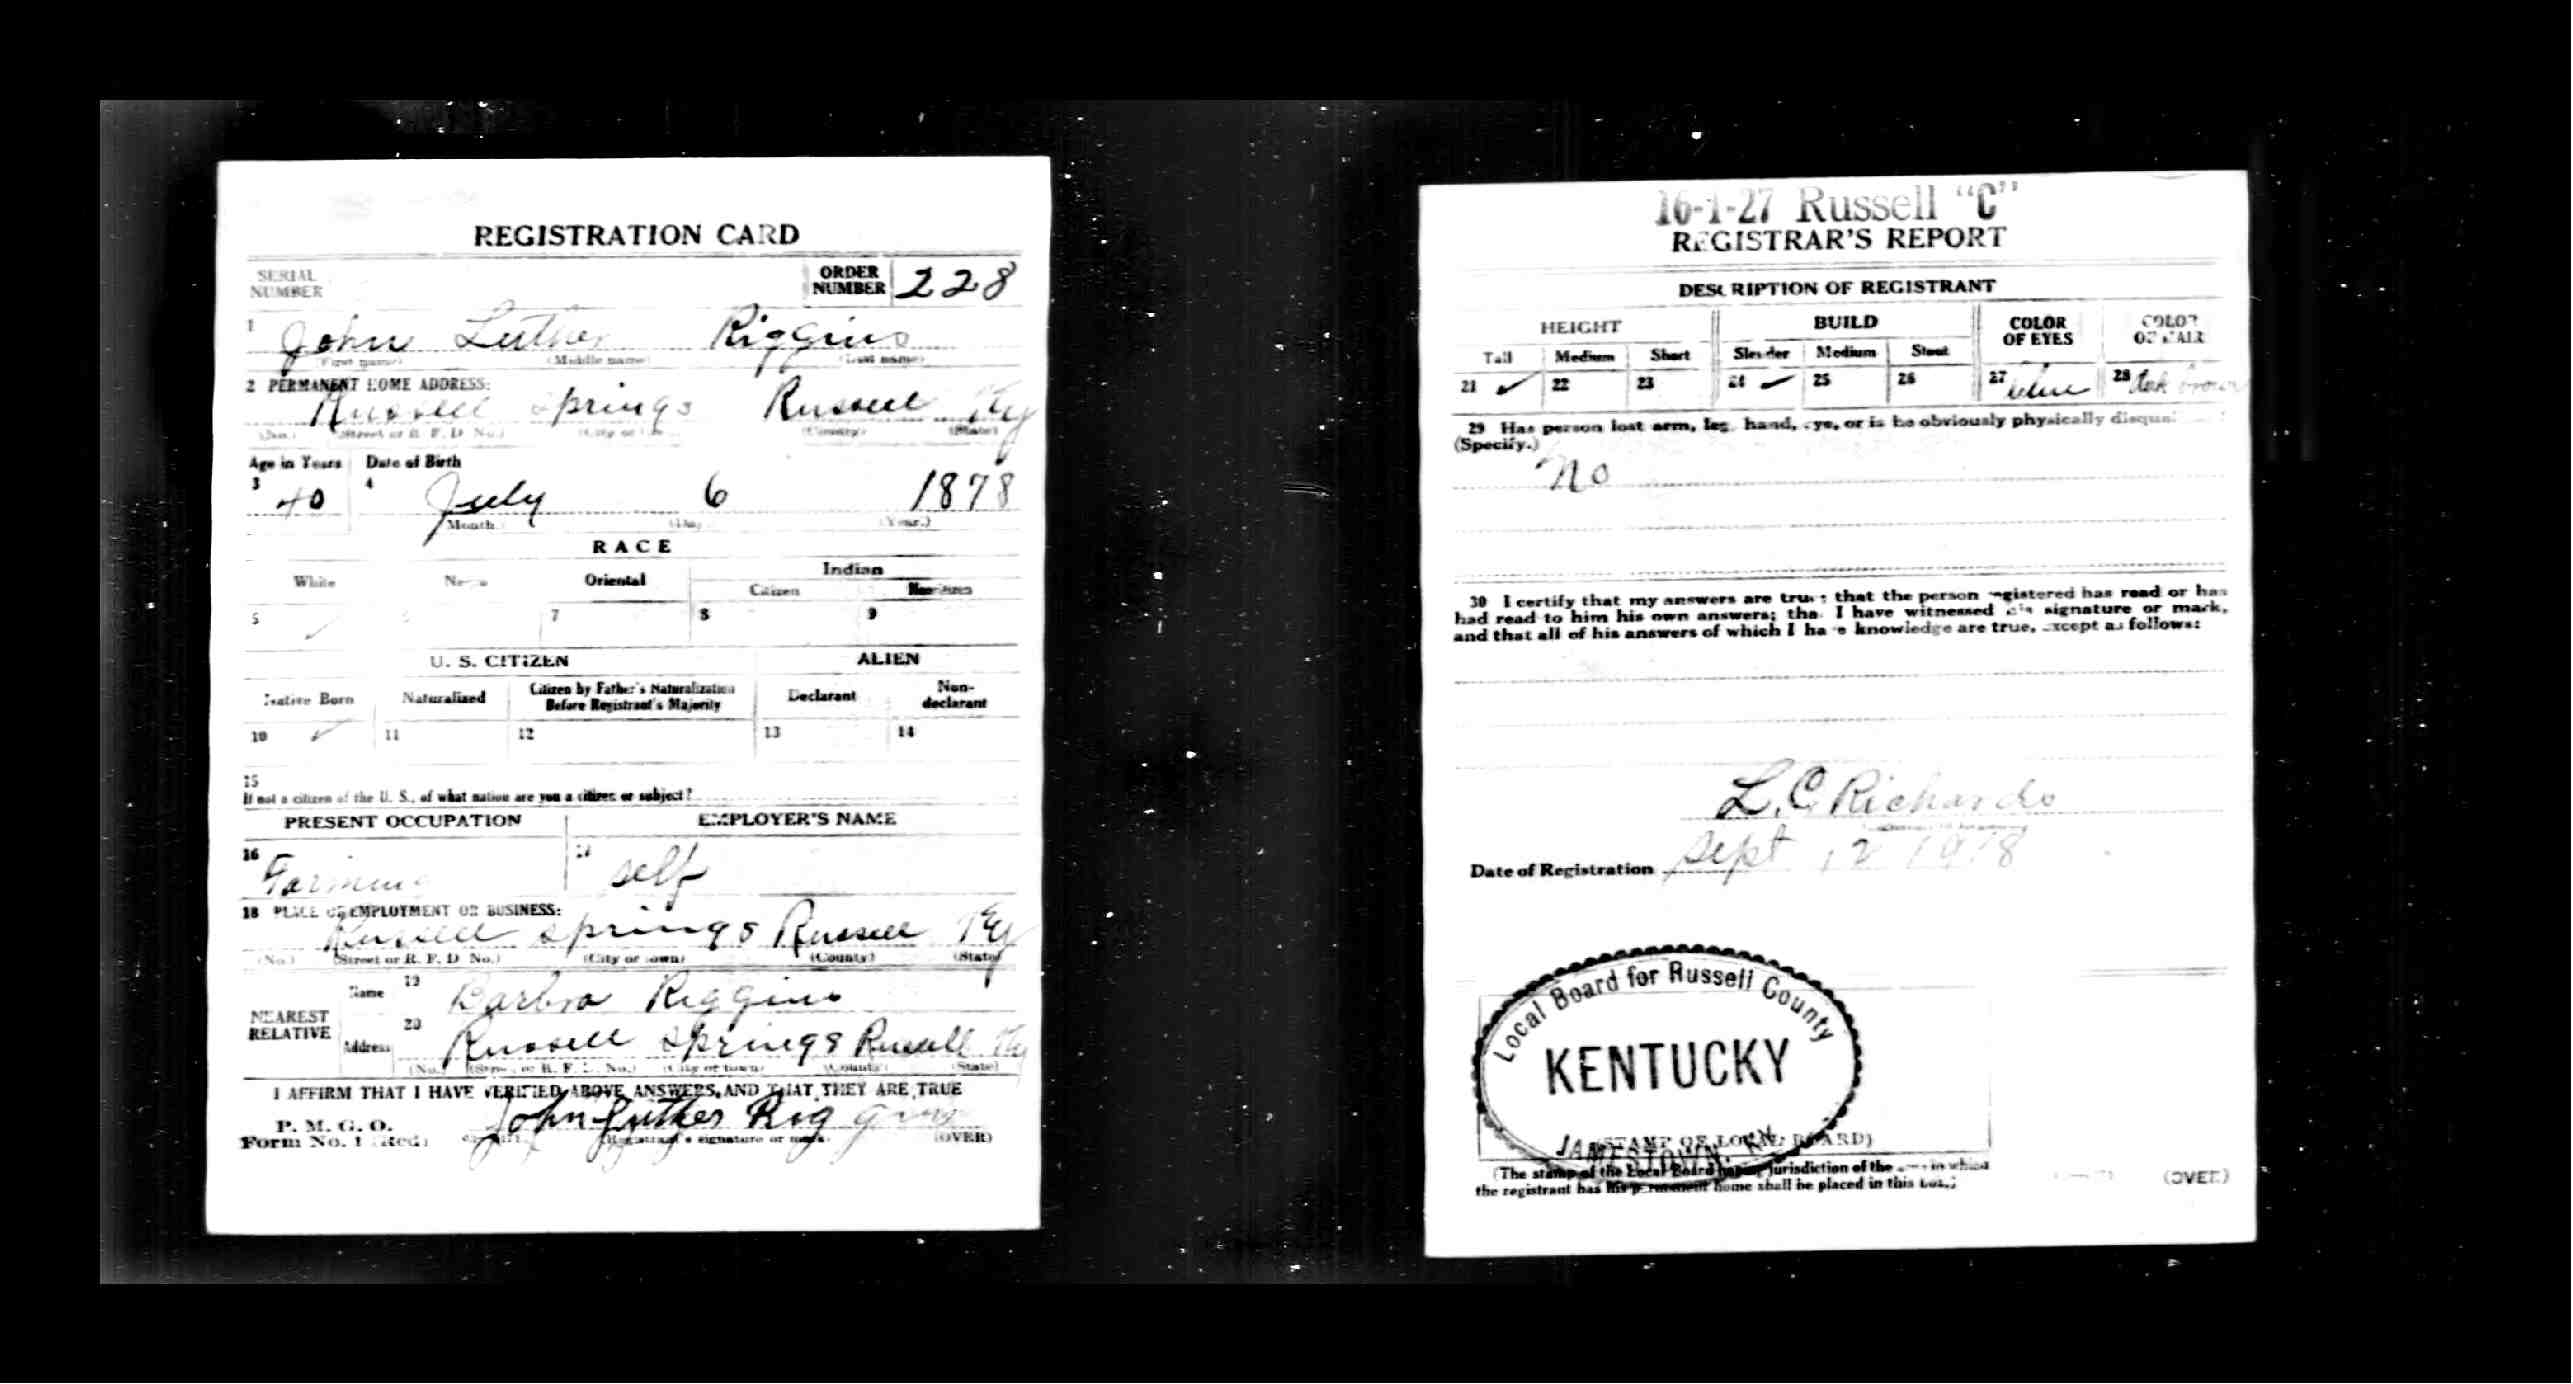 REGISTRATION CARD
SERIAL NUMBER
ORDER NUMBER 228
1 John Luther Riggins
(First name) (Middle name) (Last name)
2 PERMANENT HOME ADDRESS:
Russell Springs Russell Ky
(No.) (Street or R. F. D. No.) (City or (County) (State)
Age in Years Date of Birth
3 40 4 July 6 1878
(Month.) (Day.) (Year.)
RACE
White Negro Oriental Indian
Citizen Noncitizen
5 ✓ 7 8 9
U. S. CITIZEN ALIEN
Native Born Naturalized Citizen by Father's Naturalization Before Registrant's Majority Declarant Non-declarant
10 ✓ 11 12 13 14
15
If not a citizen of the U. S., of what nation are you a citizen or subject?
PRESENT OCCUPATION EMPLOYER'S NAME
16 Farming self
18 PLACE OF EMPLOYMENT OR BUSINESS:
Russell Springs Russell Ky
(No.) (Street or R. F. D. No.) (City or town) (County) (State)
NEAREST RELATIVE
Name 19 Barbra Riggins
Address 20 Russell Springs Russell Ky
(No.) (Street or R. F. D. No.) (City or town) (County) (State)
I AFFIRM THAT I HAVE VERIFIED ABOVE ANSWERS, AND THAT THEY ARE TRUE
P. M. G. O.
Form No. 1 (Red) John Luther Riggins
(Registrant's signature or mark) (OVER)
16-1-27 Russell "C"
REGISTRAR'S REPORT
DESCRIPTION OF REGISTRANT
HEIGHT BUILD COLOR OF EYES COLOR OF HAIR
Tall Medium Short Slender Medium Stout
21 ✓ 22 23 24 ✓ 25 26 27 blue 28 dark brown
29 Has person lost arm, leg, hand, eye, or is he obviously physically
(Specify.)
no
30 I certify that my answers are true; that the person registered has read or has
had read to him his own answers; that I have witnessed his signature or mark,
and that all of his answers of which I have knowledge are true, except as follows:
L. C. Richards
Date of Registration Sept 12 1918
Local Board for Russell County
KENTUCKY
JAMESTOWN, KY.
(STAMP OF LOCAL BOARD)
(The stamp of the Local Board having jurisdiction of the area in which
the registrant has his permanent home shall be placed in this box.)
(OVER)